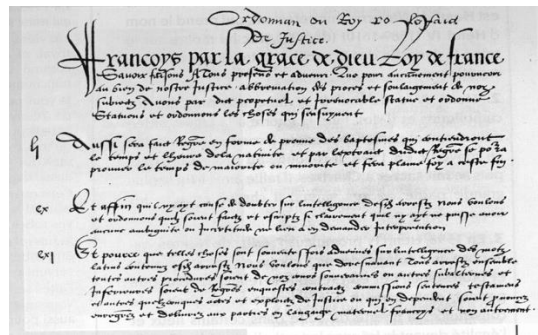 Ordonnan du Roy sur le faict
de Justice.
Francoys par la grace de dieu Roy de france
Savoir faisons A Tous presens et advenir Que pour aucunement pourveoir
au bien de nostre Justice abbreviation des proces et soulagement de noz
subiectz Avons par edict perpetuel et Irrevocable statue et ordonne
Statuons et ordonnons les choses qui sensuyvent
li Aussi sera faict Regre en forme de preuve des baptesmes qui contiendront
le temps et lheure dela nativite et par lextraict dudict Regre se po͞ra
prouver le temps de maiorite ou minorite et fera plaine foy a ceste fin
cx Et affin quil ny ayt cause de doubter sur lintelligence desd arrestz Nous voulons
et ordonnons quilz soient faictz et escriptz si clairement quil ny ayt ne puisse avoir
aucune ambiguite ou Incertitude ne lieu a en demander Interpretation
cxi Et pource que telles choses sont souventesfois advenues sur lintelligence des motz
latins contenuz esd arrestz Nous voulons que doresnavant Tous arrestz ensemble
toutes autres procedures soient de noz cours souveraines ou autres subalternes et
Inferieures soient de Regres enquestes contractz commissions sentences testamens
et autres quelzconques actes et exploictz de Justice ou qui en dependent soient prononcez
enregrez et delivrez aux parties en langaige maternel francoys et non autrement